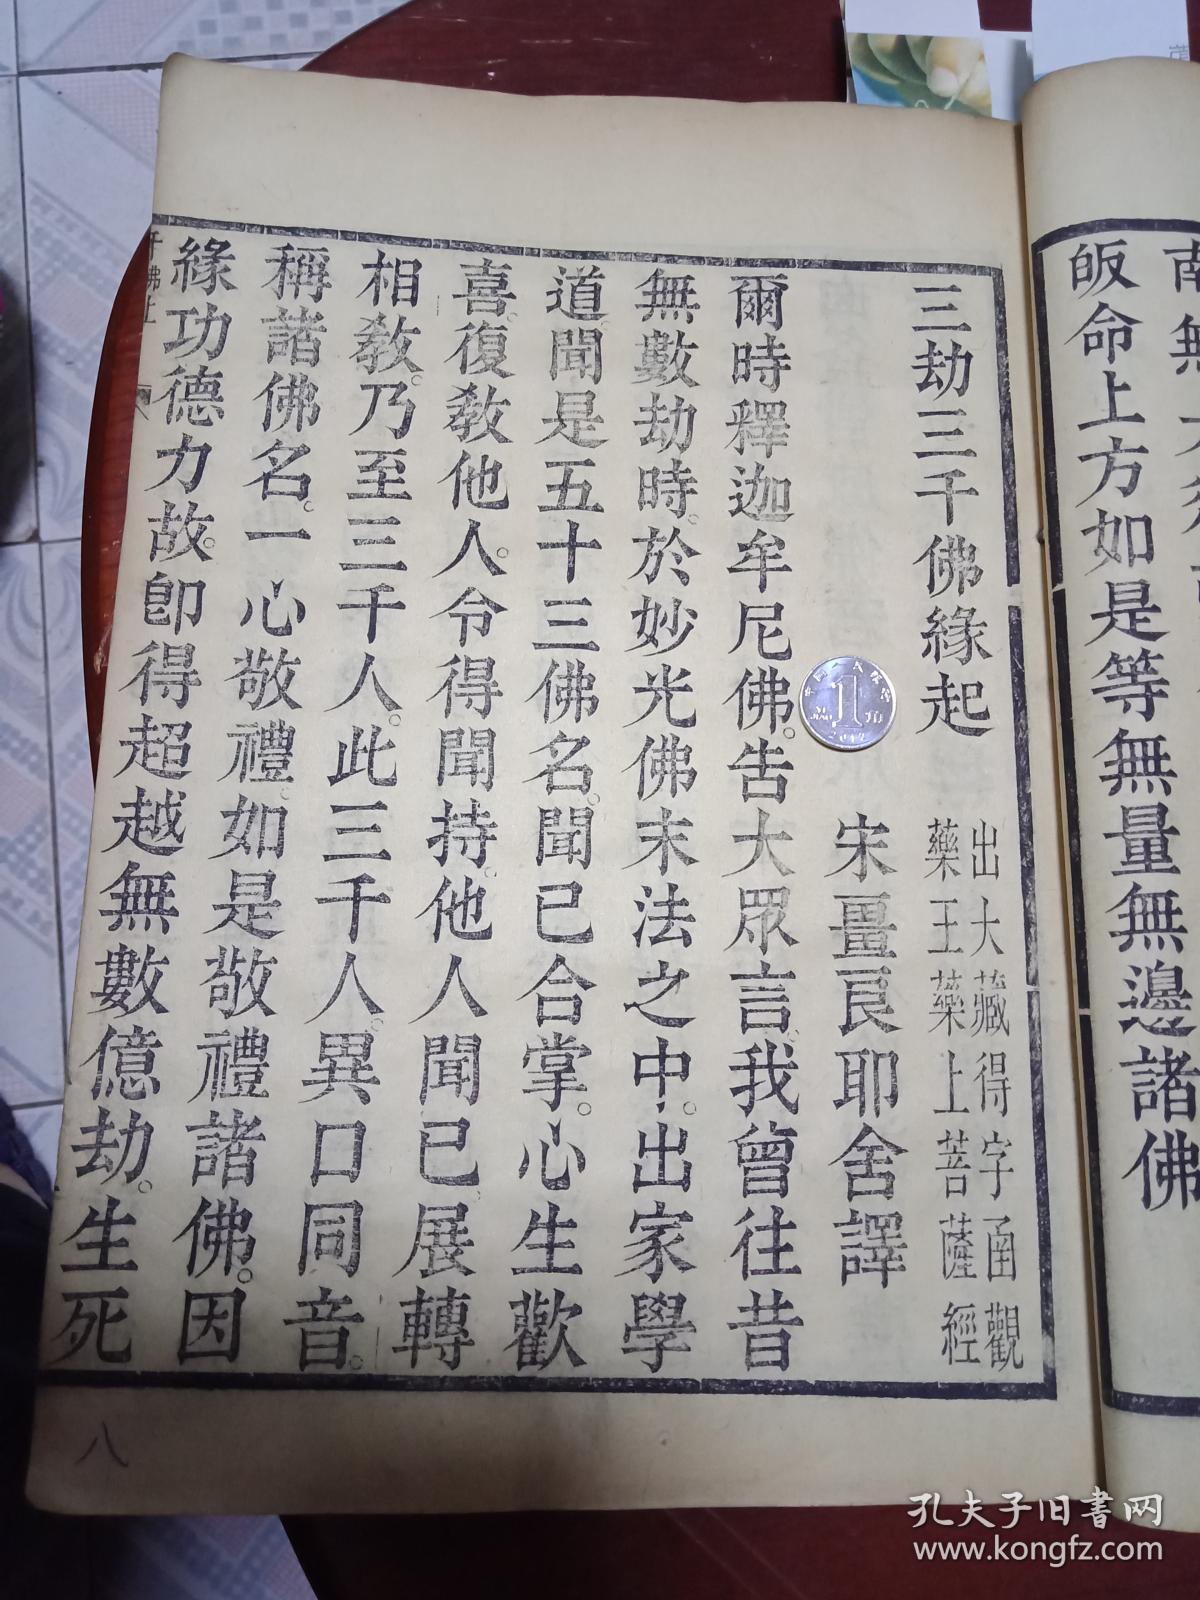 皈命上方如是等無量無邊諸佛
三劫三千佛緣起
出大藏得字函觀
藥王藥上菩薩經
宋畺良耶舍譯
爾時釋迦牟尼佛。告大眾言。我曾往昔
無數劫時。於妙光佛末法之中。出家學
道。聞是五十三佛名。聞已合掌。心生歡
喜。復教他人。令得聞持。他人聞已。展轉
相教。乃至三千人。此三千人。異口同音。
稱諸佛名。一心敬禮。如是敬禮諸佛。因
緣功德力故。卽得超越無數億劫。生死
千佛上
八
1
角
2012
孔夫子旧书网
www.kongfz.com